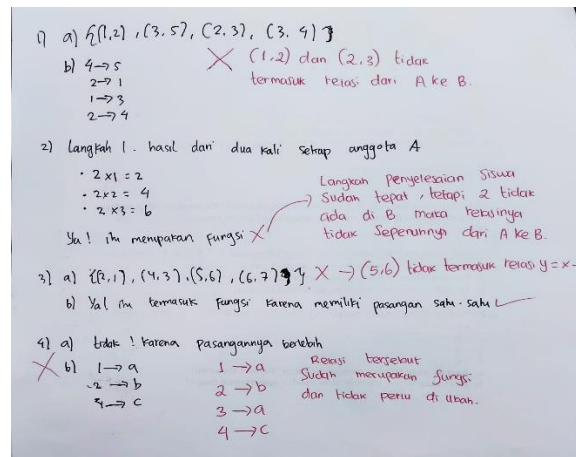 1) a) {(1,2) , (3.5), (2.3), (3.4)}
b) 4→5
2→1
1→3
2→4
X (1,2) dan (2,3) tidak
termasuk relasi dari A ke B.
2) Langkah 1. hasil dari dua kali setiap anggota A
• 2x1 = 2
• 2x2 = 4
• 2x3 = 6
Ya! ini merupakan fungsi X
Langkah Penyelesaian Siswa
Sudah tepat, tetapi 2 tidak
ada di B maka relasinya
tidak Sepenuhnya dari A ke B.
3) a) {(2,1), (4,3), (5,6), (6,7)} X → (5,6) tidak termasuk relasi y = x-
b) Ya! ini termasuk fungsi karena memiliki pasangan satu-satu
4) a) tidak! karena pasangannya berlebih
X b) 1→a
2→b
4→c
1→a
2→b
3→a
4→c
Relasi tersebut
Sudah merupakan fungsi
dan tidak perlu di ubah.